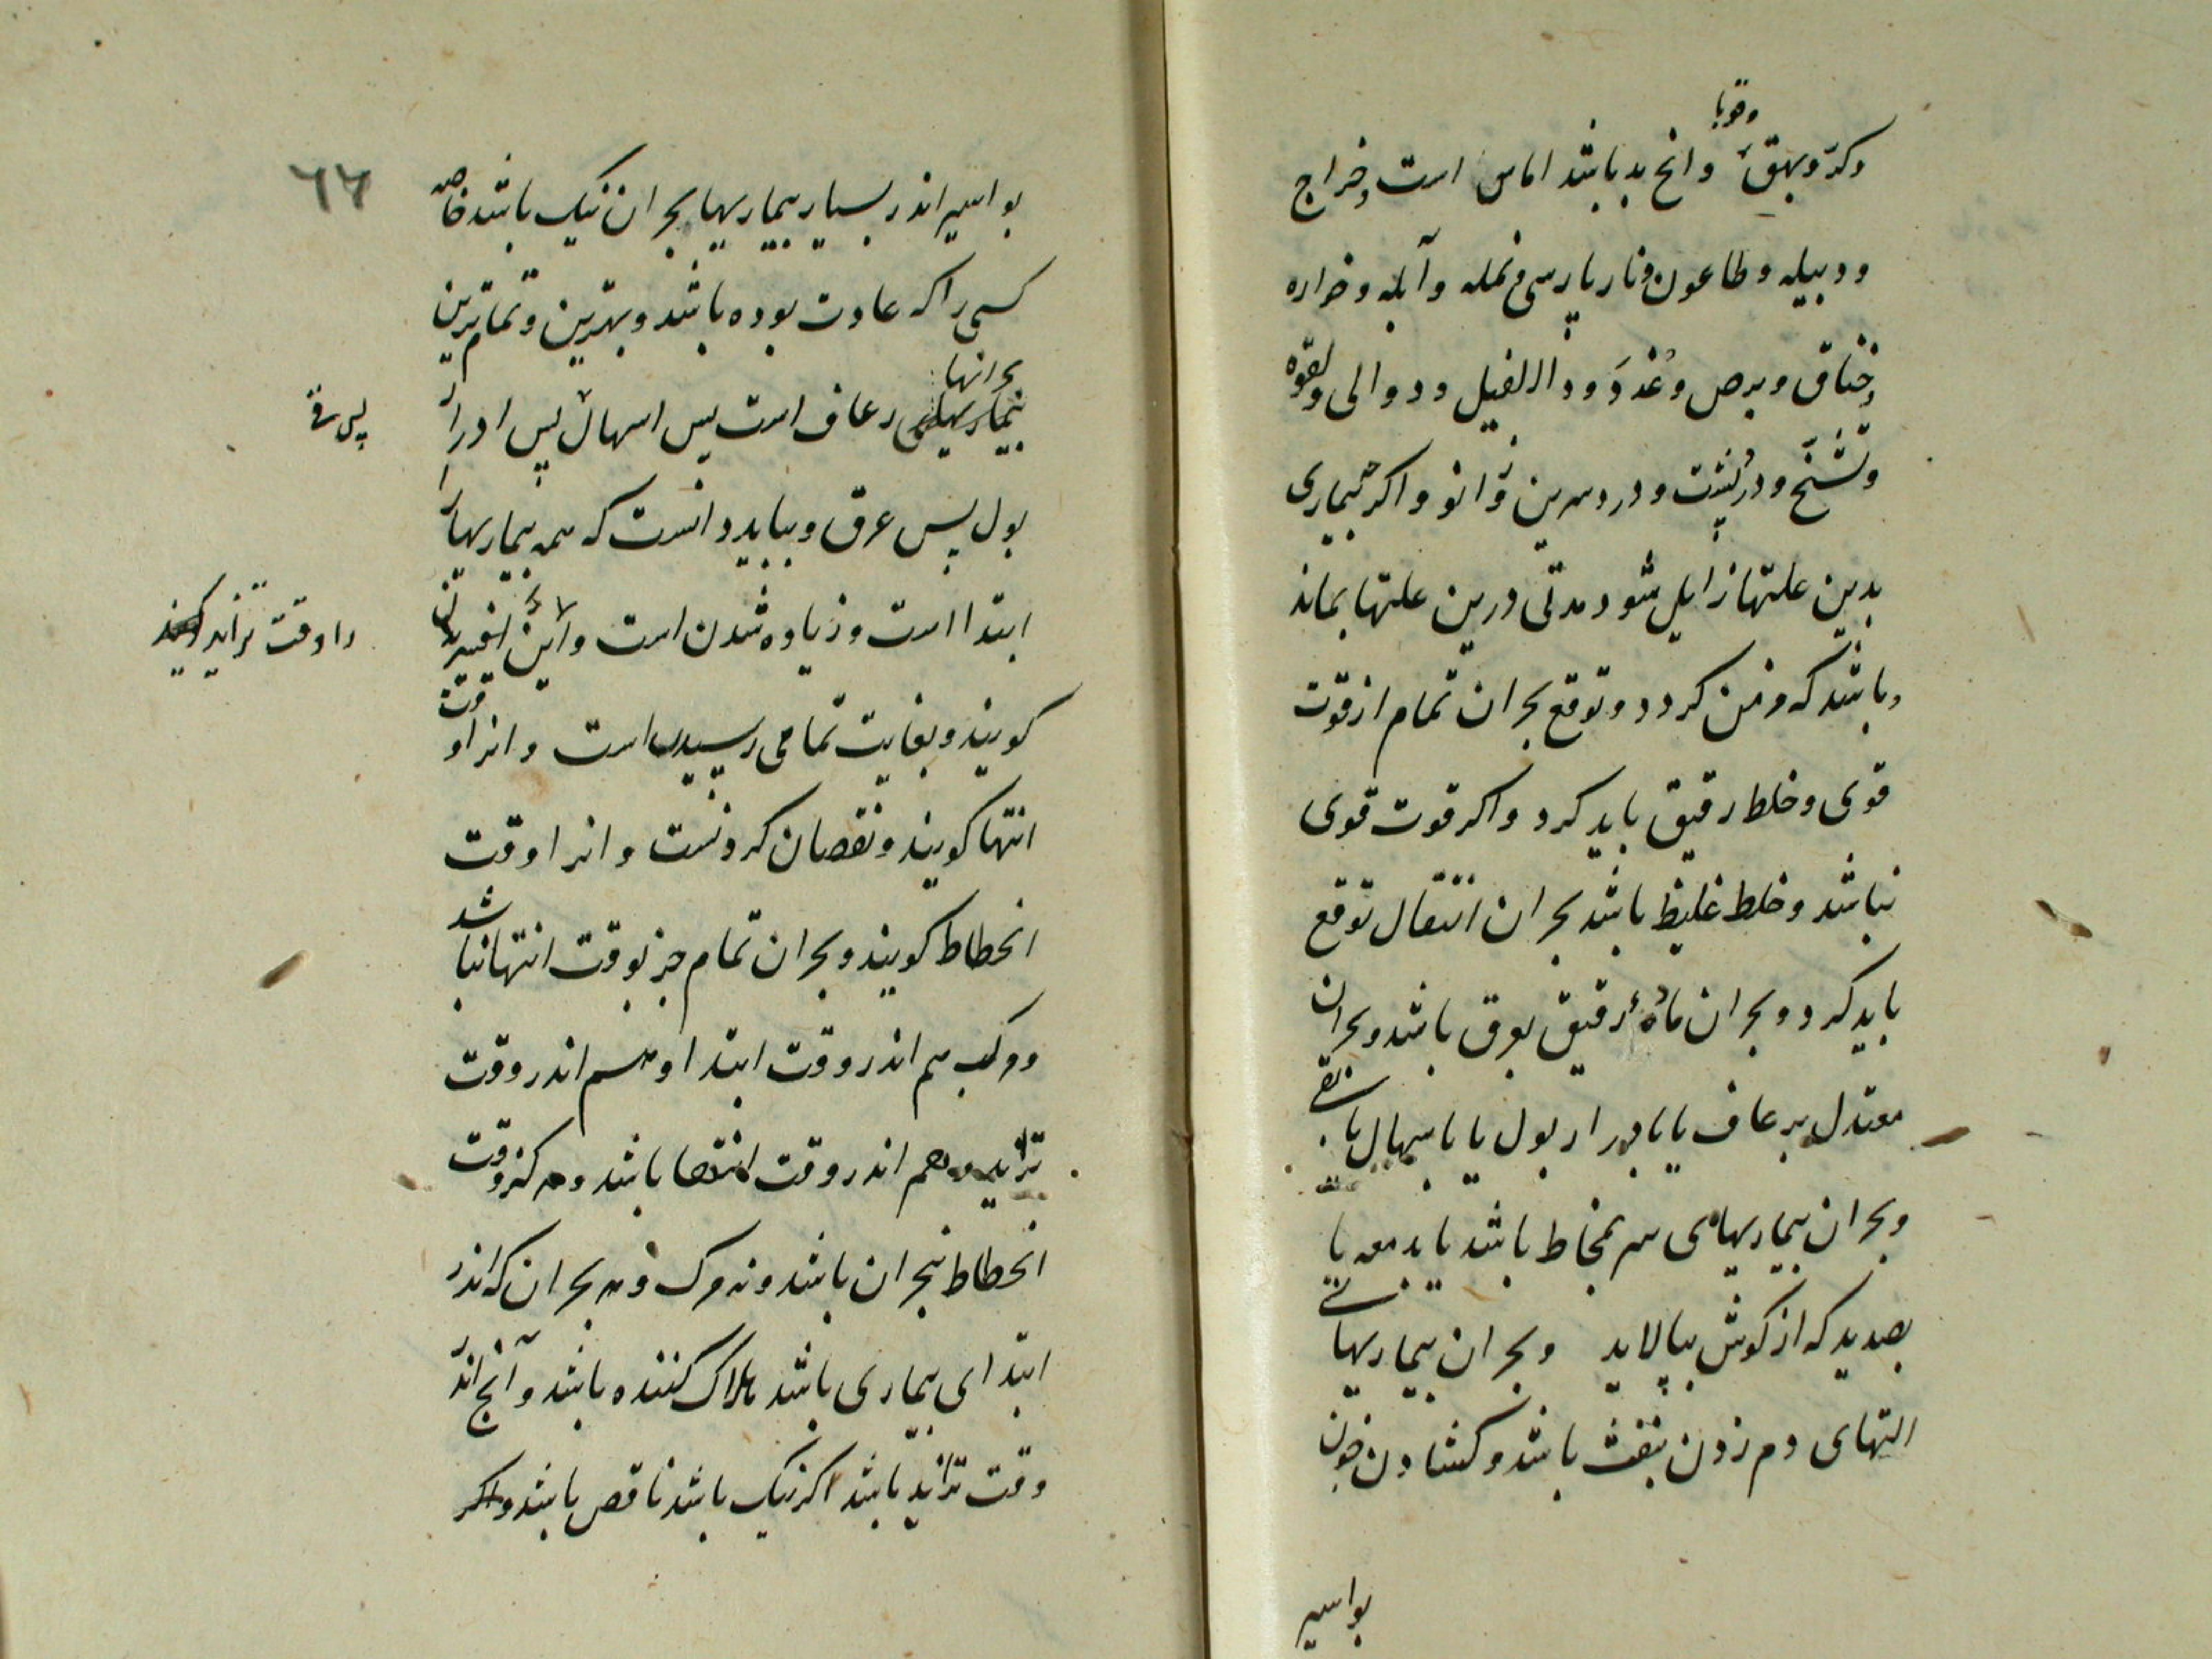 وقوبا
وکر وبهق وانچ بد باشد اماس است وخراج
ودبیله وطاعون ونار پارسی ونمله وآبله وخواره
وخناق وبرص وغدد ودا الفیل ودوالی ولقوه
وتشنج ودرد پشت ودرد سرین وزانو واکر بیماری
بدین علتها زایل شود مدتی درین علتها بماند
وباشد که مزمن کردد وتوقع بحران تمام از قوت
قوی وخلط رقیق باید کرد واکر قوت قوی
نباشد وخلط غلیظ باشد بحران انتقال توقع
باید کرد وبحران مادهٔ رقیق بعرق باشد وبحران
معتدل برعاف یا بادرار بول یا باسهال یا بقی
وبحران بیماریهای سر بمخاط باشد یا بدمعه یا
بصدید که از کوش بپالاید وبحران بیماریهای
التهای دم زدن بنفث باشد وکشادن خون
بواسیر
٦٦
بواسیر اندر بسیار بیماریها بحران نیک باشد خاصه
کسی را که عادت بوده باشد وبهترین وتمام‌ترین
بحرانها
بیماریهای رعاف است پس اسهال پس ادرار
پس قی
بول پس عرق وبباید دانست که همه بیماریها را
ابتدا است وزیاده شدن است واین
را وقت تزاید کویند
کویند وبغایت تمامی رسیدن است وانرا وقت
انتها کویند ونقصان کردنست وانرا وقت
انحطاط کویند وبحران تمام جز بوقت انتها نباشد
ومرکب هم اندر وقت ابتدا وهم اندر وقت
تزاید وهم اندر وقت انتها باشد وهرکز وقت
انحطاط نه بحران باشد ونه مرک وهر بحران که اندر
ابتدای بیماری باشد هلاک کننده باشد وآنچ اندر
وقت تزاید باشد اکر نیک باشد ناقص باشد واکر